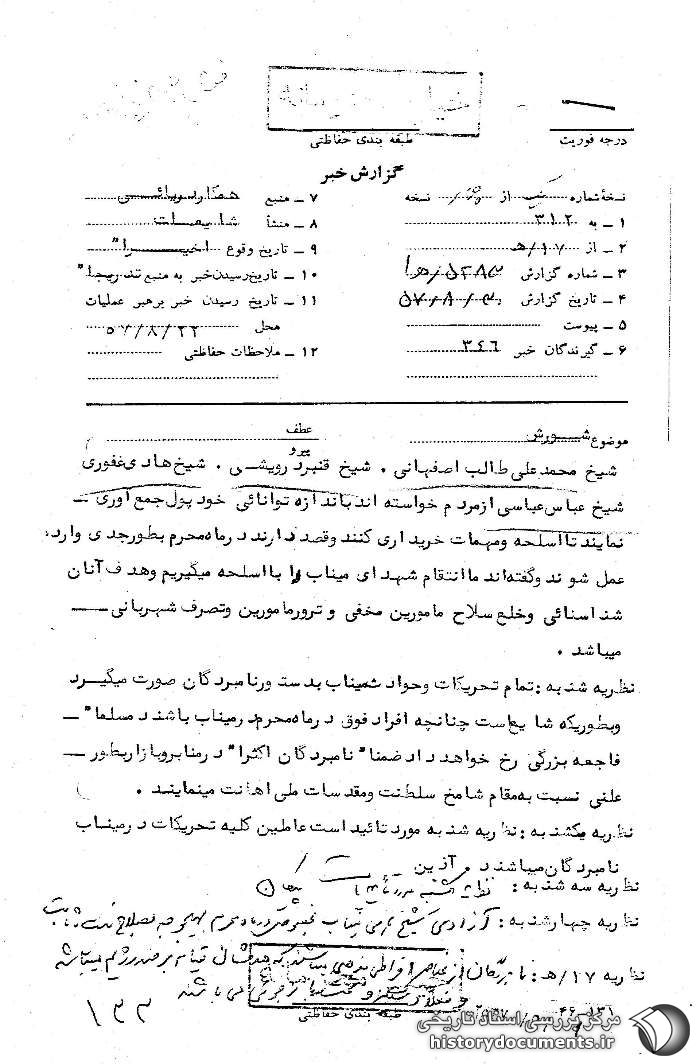 درجه فوریت
طبقه بندی حفاظتی
گزارش خبر
نسخه شماره یک از نسخه
۱ - به ۳۱۲
۲ - از ۱۷/هـ
۳ - شماره گزارش
۴ - تاریخ گزارش ۵۷/۸/۳۰
۵ - پیوست
۶ - گیرندگان خبر ۳۴۶
۷ - منبع همکار ویائی
۸ - منشأ شایعات
۹ - تاریخ وقوع اخیرا"
۱۰ - تاریخ رسیدن خبر به منبع تدریجا"
۱۱ - تاریخ رسیدن خبر برهبر عملیات
محل ۵۷/۸/۲۲
۱۲ - ملاحظات حفاظتی
موضوع شورش
عطف
پیرو
شیخ محمد علی طالب اصفهانی . شیخ قنبر درویشی . شیخ هادی غفوری
شیخ عباس عباسی از مردم خواسته اند باندازه توانائی خود پول جمع آوری ـ
نمایند تا اسلحه ومهمات خریداری کنند وقصد دارند در ماه محرم بطور جدی وارد
عمل شوند وگفته اند ما انتقام شهدای میناب را با اسلحه میگیریم وهدف آنان
شناسنائی وخلع سلاح مامورین مخفی و ترور مامورین وتصرف شهربانی ـ
میباشد .
نظریه شنبه : تمام تحریکات وحوادث میناب بدستور نامبردگان صورت میگیرد
وبطوریکه شایع است چنانچه افراد فوق در ماه محرم در میناب باشند مسلما" ـ
فاجعه بزرگی رخ خواهد داد ضمنا" نامبردگان اکثرا" در منابر وبازار بطور ـ
علنی نسبت به مقام شامخ سلطنت ومقدسات ملی اهانت مینمایند .
نظریه یکشنبه : نظریه شنبه مورد تائید است عاملین کلیه تحریکات در میناب
نامبردگان میباشند . آذین
نظریه سه شنبه : نظریه یکشنبه مورد تائید است
نظریه چهارشنبه : آزادی شیخ های میناب بخصوص در ماه محرم بهیچوجه بصلاح نیست
نظریه ۱۷/هـ : نامبردگان از عناصر افراطی مذهبی میباشند که هدفشان قیام بر ضد رژیم میباشد
طبقه بندی حفاظتی
۱۳۳
مرکز بررسی اسناد تاریخی
historydocuments.ir